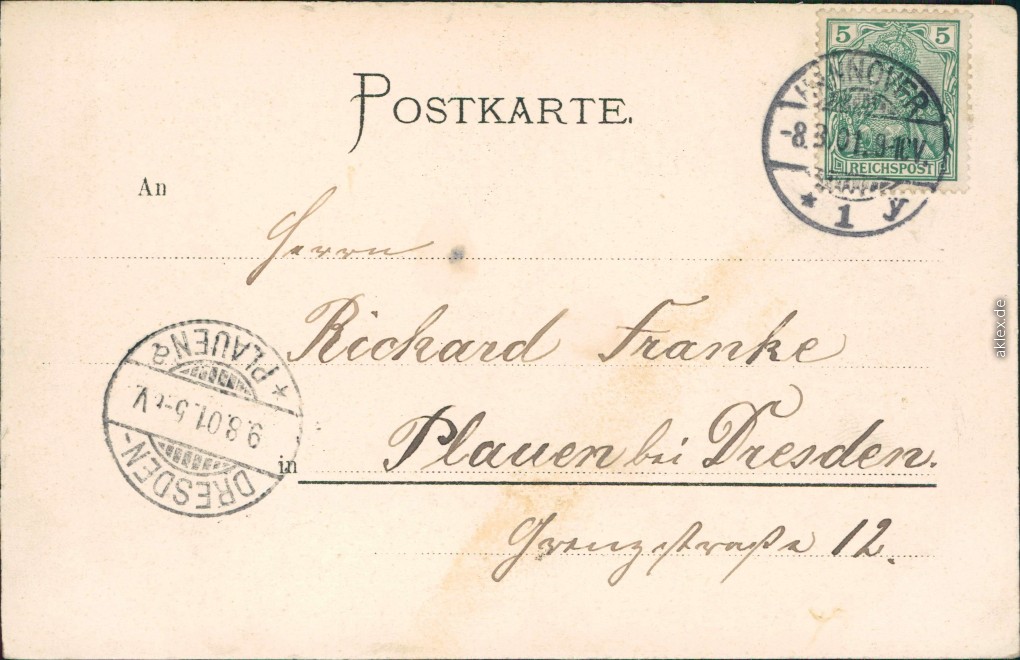 5 5
POSTKARTE.
HANNOVER
-8.8.01. 9-10.V.
* 1 y
REICHSPOST
An
Herrn
Richard Franke
* PLAUEN
9.8.01. 5-6 V
DRESDEN-
in Plauen bei Dresden.
Grenzstraße 12.
aklex.de